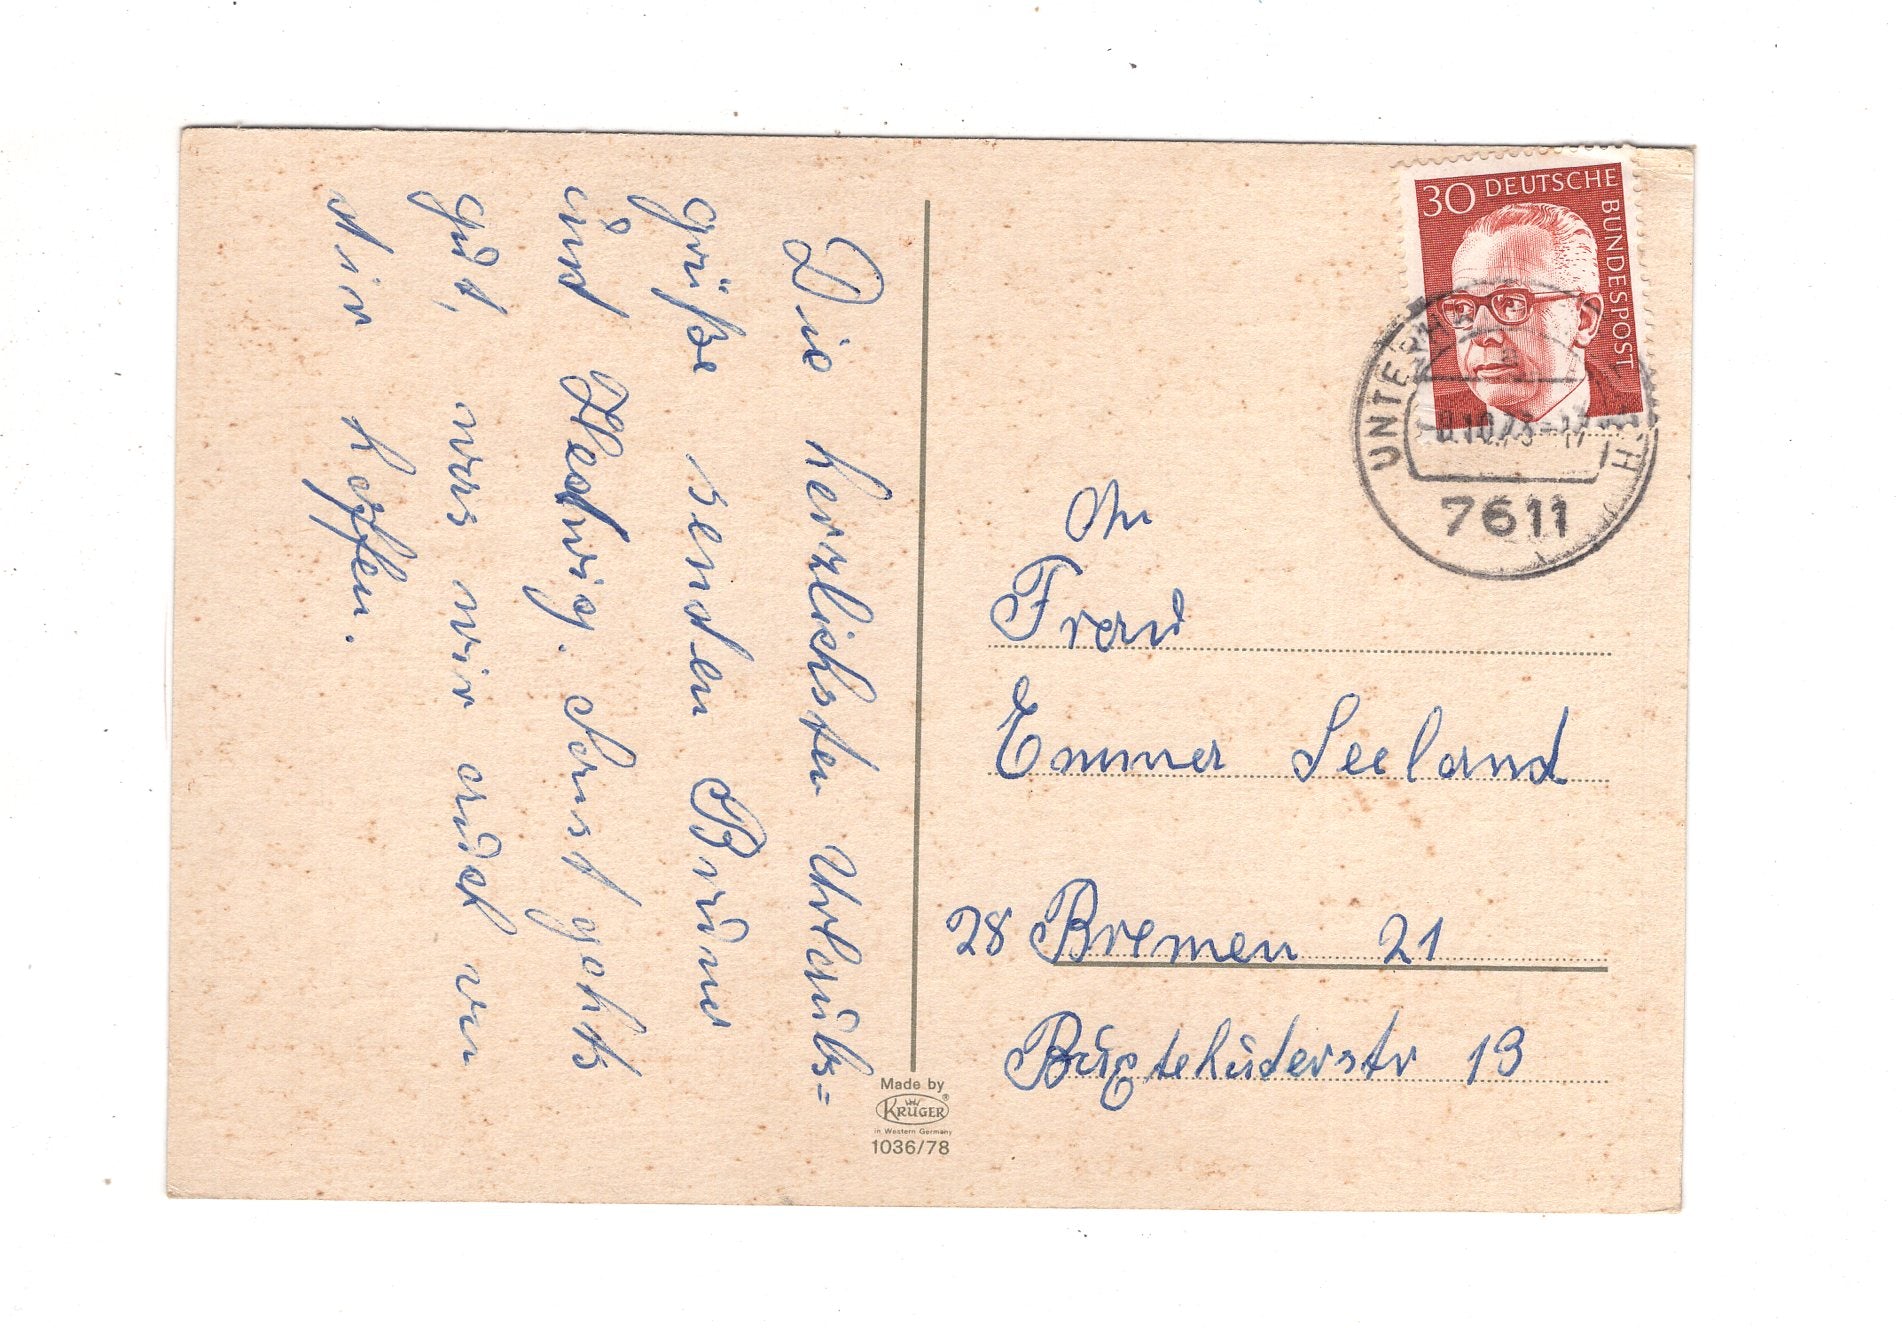 Die herzlichsten Urlaubs=
grüße senden Bruno
und Hedwig. Sonst gehts
gut, was wir auch von
dir hoffen.
Made by
KRÜGER
in Western Germany
1036/78
30 DEUTSCHE BUNDESPOST
UNTERHA H
.10.73-17
7611
An
Frau
Emma Seeland
28 Bremen 21
Buxtehuderstr 19